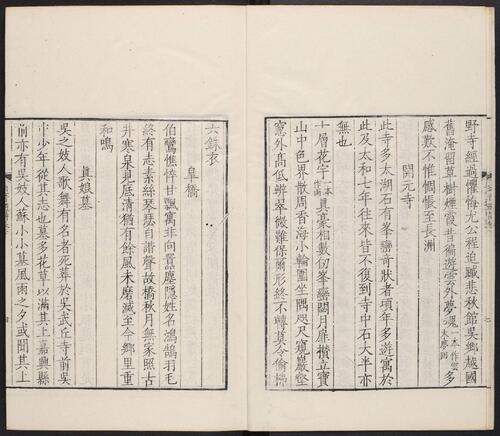 野寺經過懼悔尤公程迫蹙悲秋館吳鄉越國
舊淹留草樹煙霞昔徧遊雲外夢魂一本作雲多
感歎不惟惆悵至長洲
開元寺
此寺多太湖石有峯巒奇狀者頃年多遊寓於
此及太和七年往來皆不復到寺中石大半亦
無也
十層花宇一本作真毫相數仞峯巒閟月扉攢立寶
山中色界散周香海小輪圍坐隅咫尺窺巖壑
窻外高低辨翠微難保爾形終不轉莫令偷拂
六銖衣
皐橋
伯鸞憔悴甘飄寓非向囂塵隱姓名鴻鵠羽毛
終有志素絲琴瑟自諧聲故橋秋月無家照古
井寒泉見底清猶有餘風未磨滅至今鄉里重
和鳴
眞娘墓
吳之妓人歌舞有名者死葬於吳武丘寺前吳
中少年從其志也墓多花草以滿其上嘉興縣
前亦有吳妓人蘇小小墓風雨之夕或聞其上